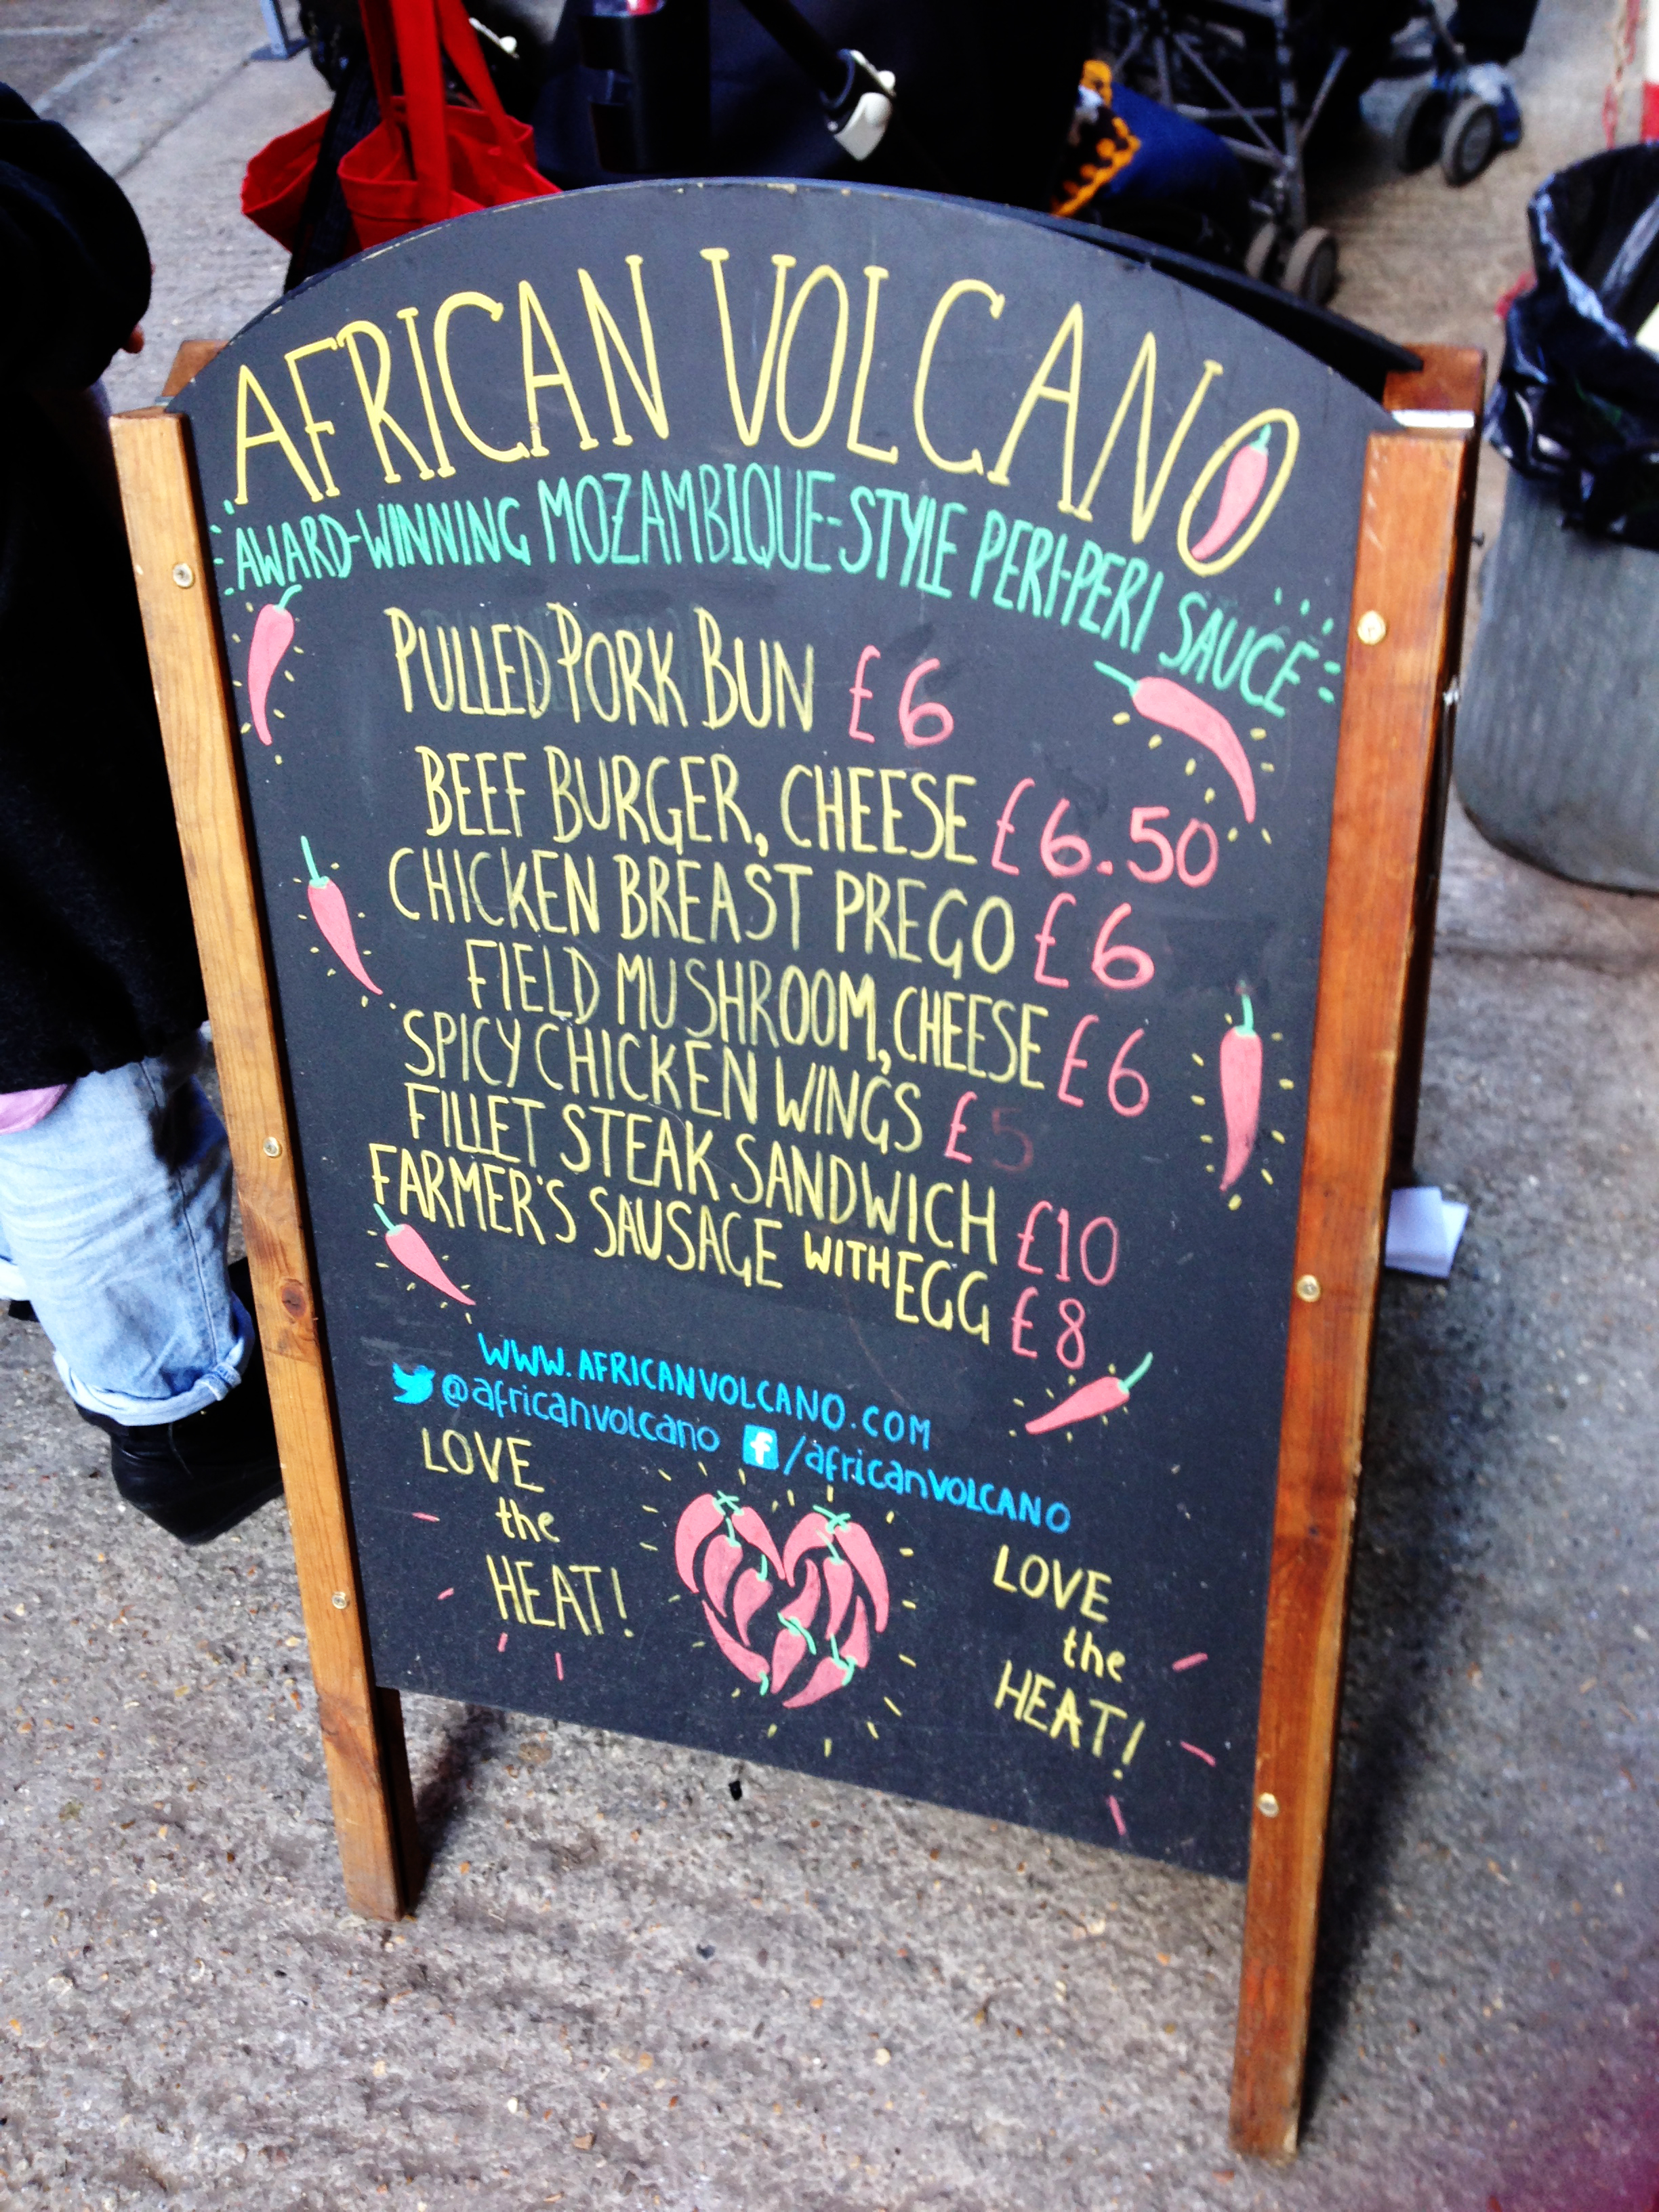 AFRICAN VOLCANO
AWARD-WINNING MOZAMBIQUE-STYLE PERI-PERI SAUCE
PULLED PORK BUN £6
BEEF BURGER, CHEESE £6.50
CHICKEN BREAST PREGO £6
FIELD MUSHROOM, CHEESE £6
SPICY CHICKEN WINGS £5
FILLET STEAK SANDWICH £10
FARMER'S SAUSAGE WITH EGG £8
WWW.AFRICANVOLCANO.COM
@africanvolcano f/africanVOLCANO
LOVE
the
HEAT!
LOVE
the
HEAT!